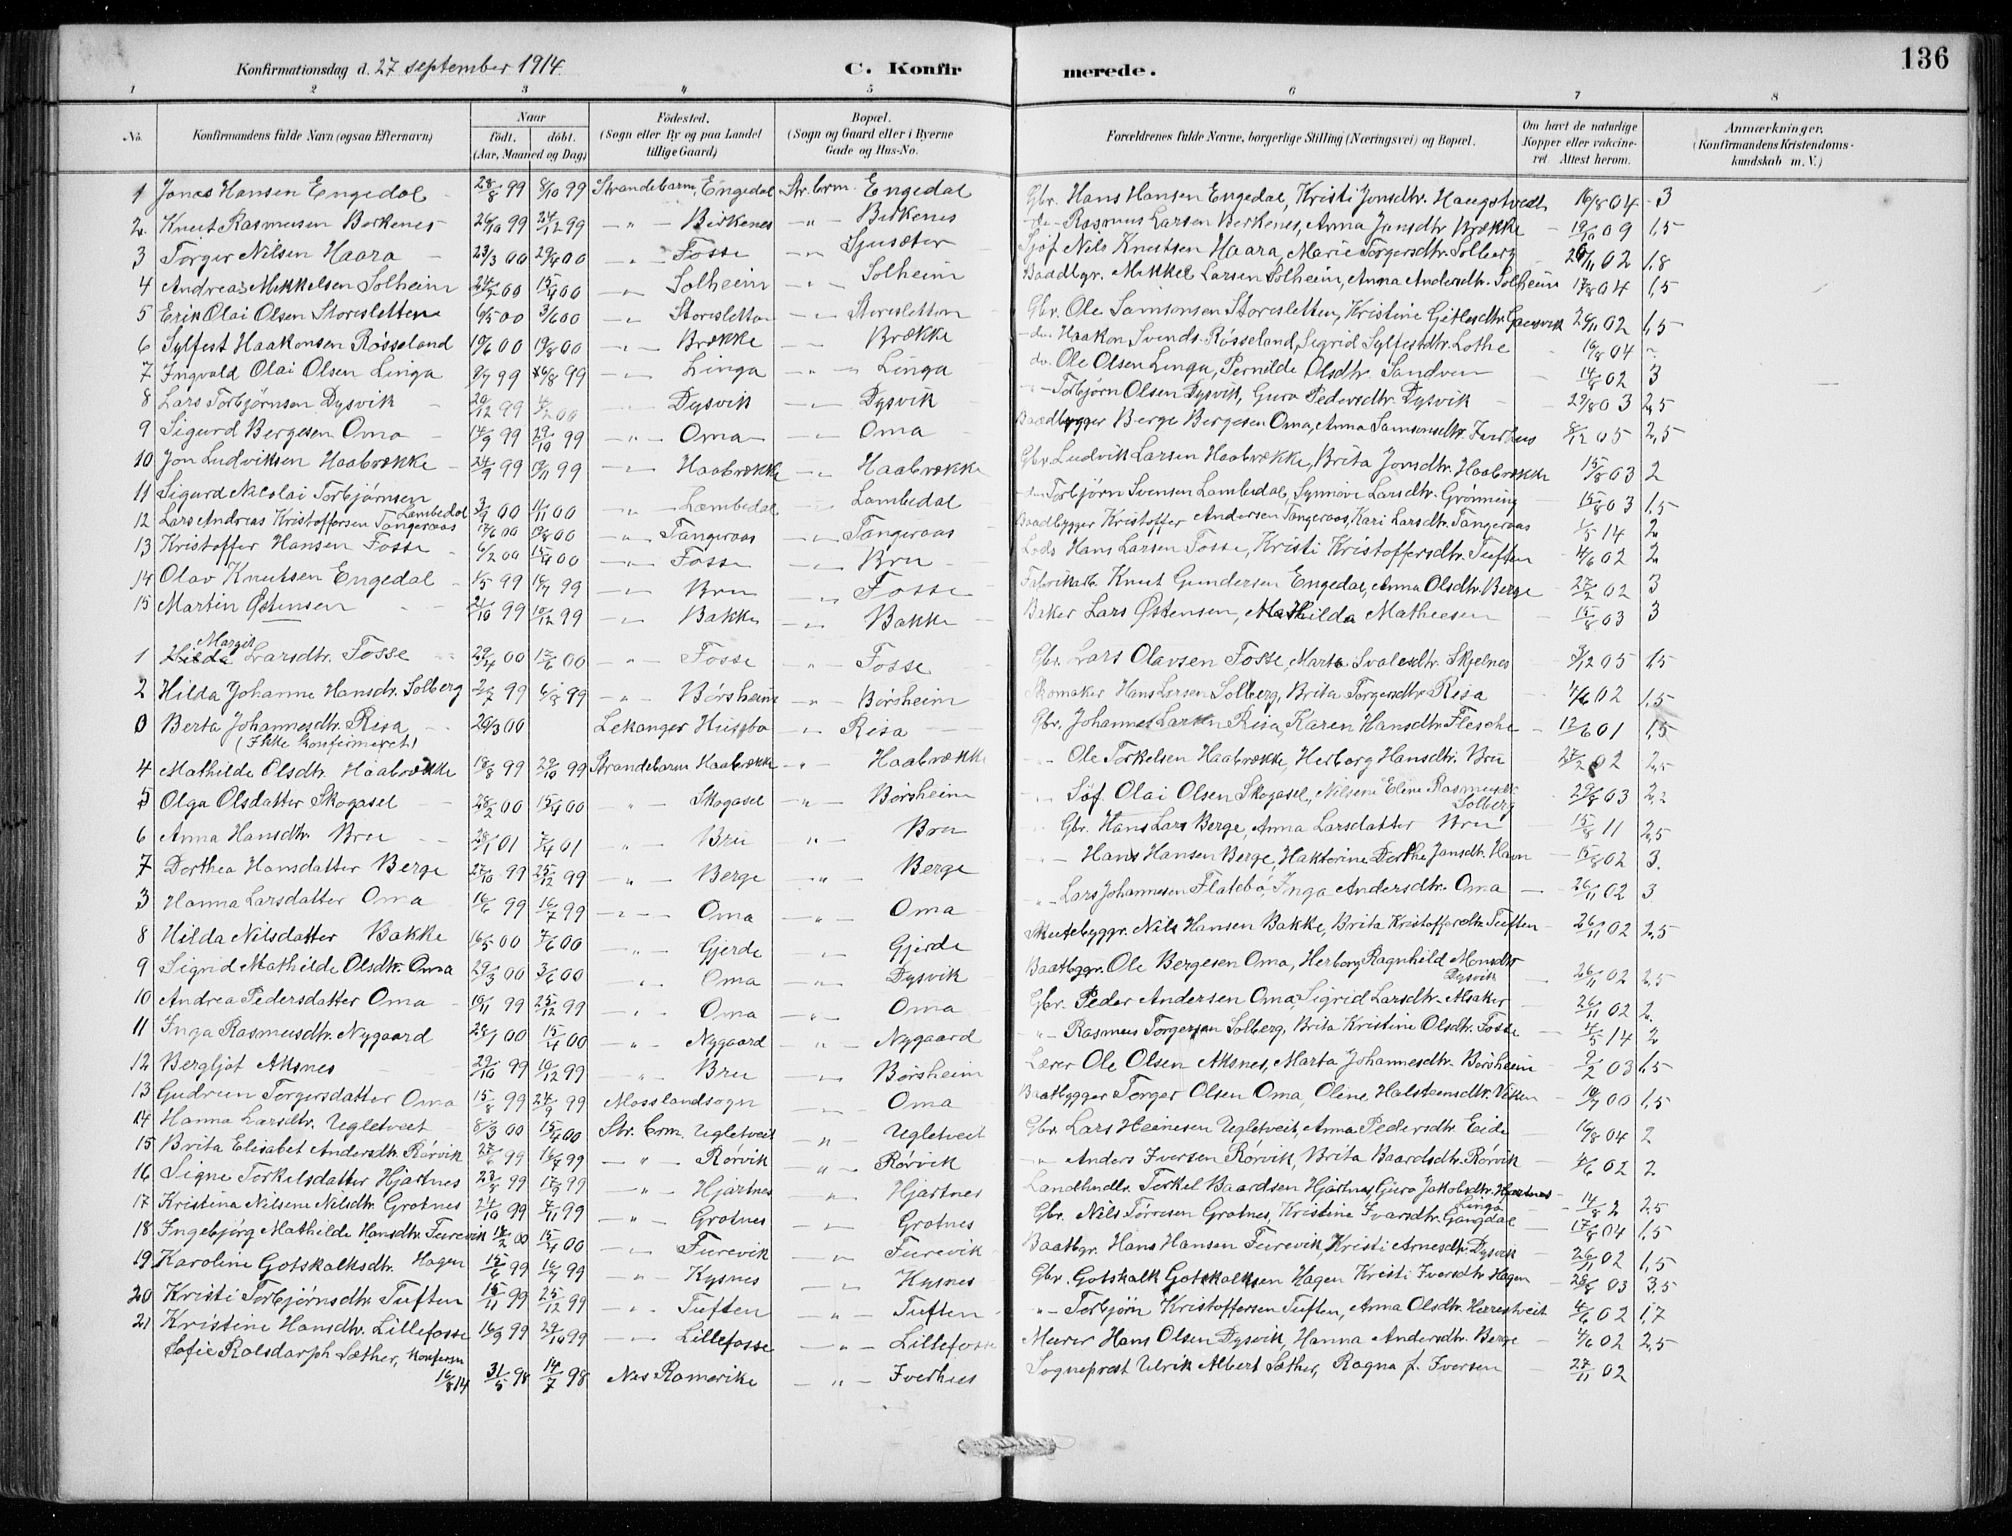 136
Konfirmationsdag d. 27 september 1914. C. Konfirmerede.
1 2 3 4 5 6 7 8
No. Konfirmandens fulde Navn (ogsaa Efternavn) Naar født. døbt. (Aar, Maaned og Dag) Fødested. (Sogn eller By og paa Landet tillige Gaard) Bopæl. (Sogn og Gaard eller i Byerne Gade og Hus-No. Forældrenes fulde Navne, borgerlige Stilling (Næringsvei) og Bopæl. Om havt de naturlige Kopper eller vakcineret. Attest herom. Anmærkninger. (Konfirmandens Kristendomskundskab m. V.)
1 Jonas Hansen Engedal 28/8 99 8/10 99 Strandebarm, Engedal Str. brm. Engedal Gbr. Hans Hansen Engedal, Kristi Jonsdtr. Haugstvedt 16/8 04 3
2 Knut Rasmusen Berkenes 26/10 99 24/12 99 -"- Birkenes -"- Birkenes do - Rasmus Larsen Berkenes, Anna Jonsdtr Brække 19/10 09 1,5
3 Torger Nilsen Haara 23/3 00 29/4 00 -"- Fosse -"- Sjusæter Sjöf Nils Knutsen Haara, Marie Torgersdtr. Solberg 26/11 02 1,8
4 Andreas Mikkelsen Solheim 24/2 00 15/4 00 -"- Solheim -"- Solheim Baadbgr. Mikkel Larsen Solheim, Anna Andersdtr. Solheim 17/8 04 1,5
5 Erik Olai Olsen Storesletten 6/5 00 3/6 00 -"- Storesletten -"- Storesletten Gbr. Ole Samsonsen Storesletten, Kristine Gitlesdtr. 26/11 02 1,5
6 Sylfest Haakonsen Røsseland 10/6 00 19/8 00 -"- Brække -"- Brække do Haakon Svends. Røsseland, Sigrid Sylfestdtr. Lothe 16/8 04 -"-
7 Ingvald Olai Olsen Linga 9/7 99 6/8 99 -"- Linga -"- Linga do Ole Olsen Linga, Pernilde Olsdtr. Sandven 14/8 02 3
8 Lars Torbjørnsen Dysvik 20/12 99 4/2 00 -"- Dysvik -"- Dysvik -"- Torbjørn Olsen Dysvik, Guro Pedersdtr. Dysvik 29/8 03 2,5
9 Sigurd Bergesen Oma 14/9 99 29/10 99 -"- Oma -"- Oma Baadbygger Berge Bergesen Oma, Anna Samsonsdtr. Furhus 8/12 05 2,5
10 Jon Ludviksen Haabrække 24/9 99 19/11 99 -"- Haabrække -"- Haabrække Gbr. Ludvik Larsen Haabrække, Brita Jonsdtr. Haabrække 15/8 03 2
11 Sigurd Nicolai Torbjørnsen Lambedal 3/9 00 11/11 00 -"- Lambedal -"- Lambedal do Torbjörn Svensen Lambedal, Synnöve Larsdtr. Grönning 15/8 03 1,5
12 Lars Andreas Kristoffersen Tangeraas 17/6 00 19/8 00 -"- Tangeraas -"- Tangeraas Baadbygger Kristoffer Andersen Tangeraas, Kari Larsdtr. Tangeraas 1/5 14 2
13 Kristoffer Hansen Fosse 6/2 00 15/4 00 -"- Fosse -"- Bru Lods Hans Larsen Fosse, Kristi Kristoffersdtr. Tuften 4/6 02 2
14 Olav Knutsen Engedal 1/5 99 16/7 99 -"- Bru -"- Fosse Fabrikarb. Knut Gundersen Engedal, Anna Olsdtr. Berge 27/2 02 3
15 Martin Østensen 21/10 99 10/12 99 -"- Bakke -"- Bakke Baker Lars Østensen, Mathilda Matheesen 15/8 03 3
1 Margit Larsdtr. Fosse 29/4 00 17/6 00 -"- Fosse -"- Fosse Gbr. Lars Olavsen Fosse, Marta Svalesdtr. Skjelnes 3/12 05 1,5
2 Hilda Johanne Hansdtr. Solberg 2/7 99 6/8 99 -"- Børsheim -"- Børsheim Skomaker Hans Larsen Solberg, Brita Torgersdtr. Risa 4/6 02 1,5
0 Berta Johannesdtr. Risa (Ikke konfirmeret) 26/3 00 Lekanger Husebø -"- Risa Gbr. Johannes Larsen Risa, Karen Hansdtr. Flesche 12/6 01 1,5
4 Mathilde Olsdtr. Haabrække 18/8 99 29/10 99 Strandebarm Haabrække -"- Haabrække -"- Ole Torkelsen Haabrække, Herborg Hansdtr. Bru 27/2 02 2,5
5 Olga Olsdatter Skogasel 28/2 00 15/4 00 -"- Skogasel -"- Børsheim -"- Söf. Olai Olsen Skogasel, Nilsine Eline Rasmusdtr. Solberg 29/8 03 2,2
6 Anna Hansdtr. Bru 28/1 01 7/4 01 -"- Bru -"- Bru -"- Gbr. Hans Lars Berge, Anna Larsdatter Bru 15/8 11 2,5
7 Dorthea Hansdatter Berge 27/10 99 25/12 99 -"- Berge -"- Berge -"- Hans Hansen Berge, Haktorine Dorthe Jonsdtr. Havn 15/8 02 3.
3 Hanna Larsdatter Oma 16/6 99 16/7 99 -"- Oma -"- Oma -"- Lars Johannesen Flatebö, Inga Andersdtr. Oma 26/11 02 3
8 Hilda Nilsdatter Bakke 16/5 00 7/6 00 -"- Gjerde -"- Gjerde Skutebyggr. Nils Hansen Bakke, Brita Kristoffersdtr. Tuften 26/11 02 2,5
9 Sigrid Mathilde Olsdtr. Oma 29/3 00 3/6 00 -"- Oma -"- Dysvik Baatbggr. Ole Bergesen Oma, Herborg Ragnhild Monsdtr Dysvik 26/11 02 2,5
10 Andrea Pedersdatter Oma 10/11 99 25/12 99 -"- Oma -"- Oma Gbr. Peder Andersen Oma, Sigrid Larsdtr. Alsaker 26/11 02 2.
11 Inga Rasmusdtr. Nygaard 28/1 00 15/4 00 -"- Nygaard -"- Nygaard -"- Rasmus Torgersen Solberg, Brita Kristine Olsdtr. Fosse 4/5 14 2
12 Bergljot Aksnes 29/10 99 10/12 99 -"- Bru -"- Børsheim Lærer Ole Olsen Aksnes, Marta Johannesdtr. Børsheim 9/2 03 1,5
13 Gudrun Torgersdatter Oma 15/8 99 24/9 99 Mosslandsogn -"- Oma Baatbygger Torger Olsen Oma, Oline Halsteensdtr. Vikøen 19/7 00 1,5
14 Hanna Larsdtr. Ugletveit 8/3 00 15/4 00 Str. brm. Ugletveit -"- Ugletveit Gbr. Lars Heinesen Ugletveit, Anna Pedersdtr. Eide 16/8 04 2
15 Brita Elisabet Andersdtr. Rørvik 27/6 99 16/7 99 -"- Rørvik -"- Rørvik -"- Anders Iversen Rørvik, Brita Baardsdtr. Rørvik 4/6 02 2
16 Signe Torkelsdatter Hjartnes 23/8 99 17/9 99 -"- Hjartnes -"- Hjartnes Landhndlr. Torkel Baardsen Hjartnes, Guro Jakobsdtr. Hjartnes Linga 14/8 2 2,5
17 Kristina Nilsine Nilsdtr. Grotnes 24/10 99 7/11 99 -"- Grotnes -"- Grotnes Gbr. Nils Torresen Grotnes, Kristine Ivarsdtr. Gangdal 17/8 04 1,5
18 Ingebjørg Mathilde Hansdtr. Furevik 14/2 00 15/4 00 -"- Furevik -"- Furevik Baatbgr. Hans Hansen Furevik, Kristi Arnesdtr. Dysvik 26/11 02 1,5
19 Karoline Gotskalksdtr. Hagen 15/6 99 16/7 99 -"- Kysnes -"- Kysnes Gbr. Gotskalk Gotskalksen Hagen Kristi Iversdtr. Hagen 28/8 03 3.5
20 Kristi Torbjørnsdtr. Tuften 15/11 99 25/12 99 -"- Tuften -"- Tuften -"- Torbjörn Kristoffersen Tuften, Anna Olsdtr. Herrestveit 4/6 02 1,7
21 Kristine Hansdtr. Lillefosse 16/9 99 29/10 99 -"- Lillefosse -"- Lillefosse Murer Hans Olsen Dysvik, Hanna Andersdtr. Berge 4/6 02 2,5
Sofie Rolsdorph Sæther, Konferm 16/8 14 31/5 98 14/7 98 Nes Romerike -"- Fuerhus Sogneprest Ulrik Albert Sæther, Ragna f. Iversen 27/11 02